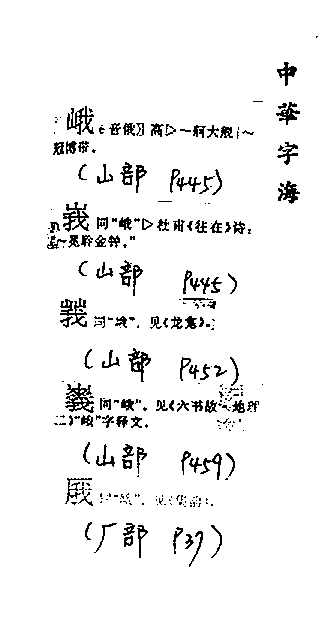 中華字海
峨 é 音俄 高▷~舸大舰|~
冠博带。
(山部 P445)
峩 同“峨”▷杜甫《往在》诗:
“~冕聆金钟。”
(山部 P445)
同“峨”。见《龙龛》。
(山部 P452)
同“峨”。见《六书故·地理
二》“峨”字释文。
(山部 P459)
(厂部 P37)